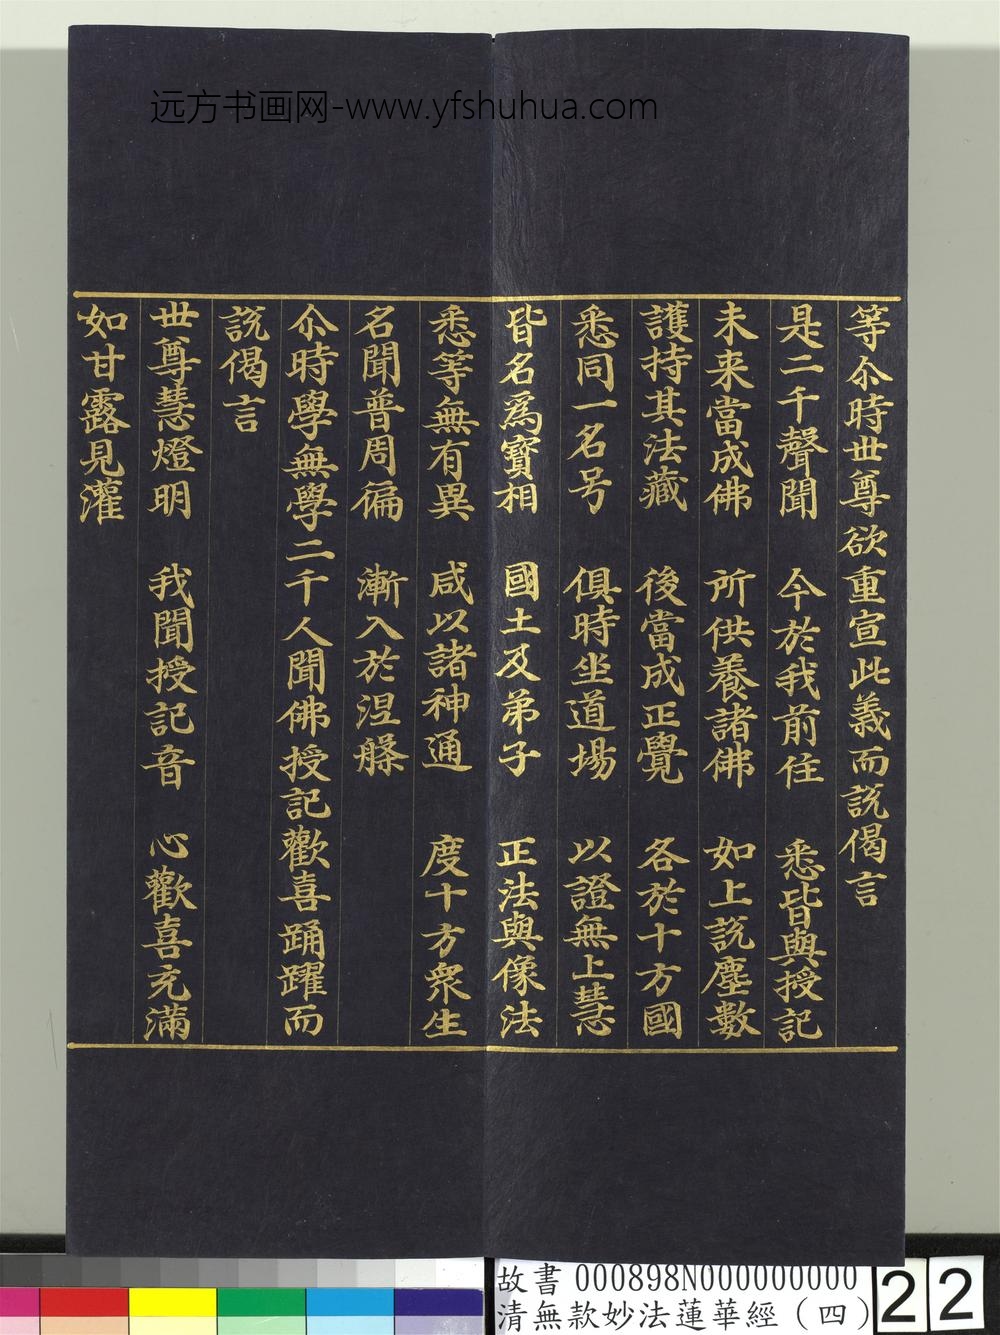 远方书画网-www.yfshuhua.com
等尒時世尊欲重宣此義而説偈言
是二千聲聞　今於我前住　悉皆與授記
未来當成佛　所供養諸佛　如上説塵數
護持其法藏　後當成正覺　各於十方國
悉同一名号　俱時坐道場　以證無上慧
皆名為寶相　國土及弟子　正法與像法
悉等無有異　咸以諸神通　度十方衆生
名聞普周徧　漸入於涅槃
尒時學無學二千人聞佛授記歡喜踊躍而
説偈言
世尊慧燈明　我聞授記音　心歡喜充滿
如甘露見灌
故書 000898N000000000
清無款妙法蓮華經（四）
22